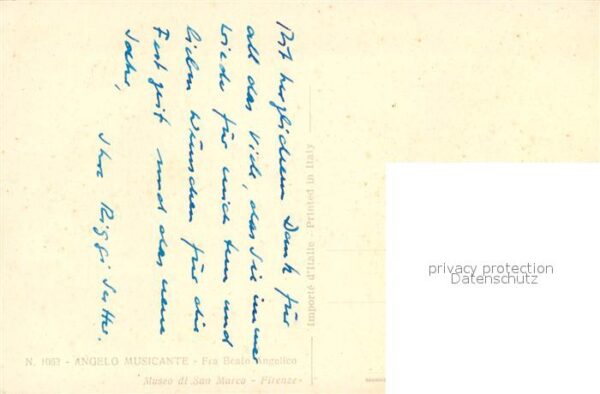 Mit herzlichem Dank für
all das Viele, das Sie immer
wieder für mich tun und
lieben Wünschen für die
Festzeit und das neue
Jahr,
Ihre
N. 1062 - ANGELO MUSICANTE - Fra Beato Angelico
Museo di San Marco - Firenze-
Importé d'Italie - Printed in Italy
privacy protection
Datenschutz